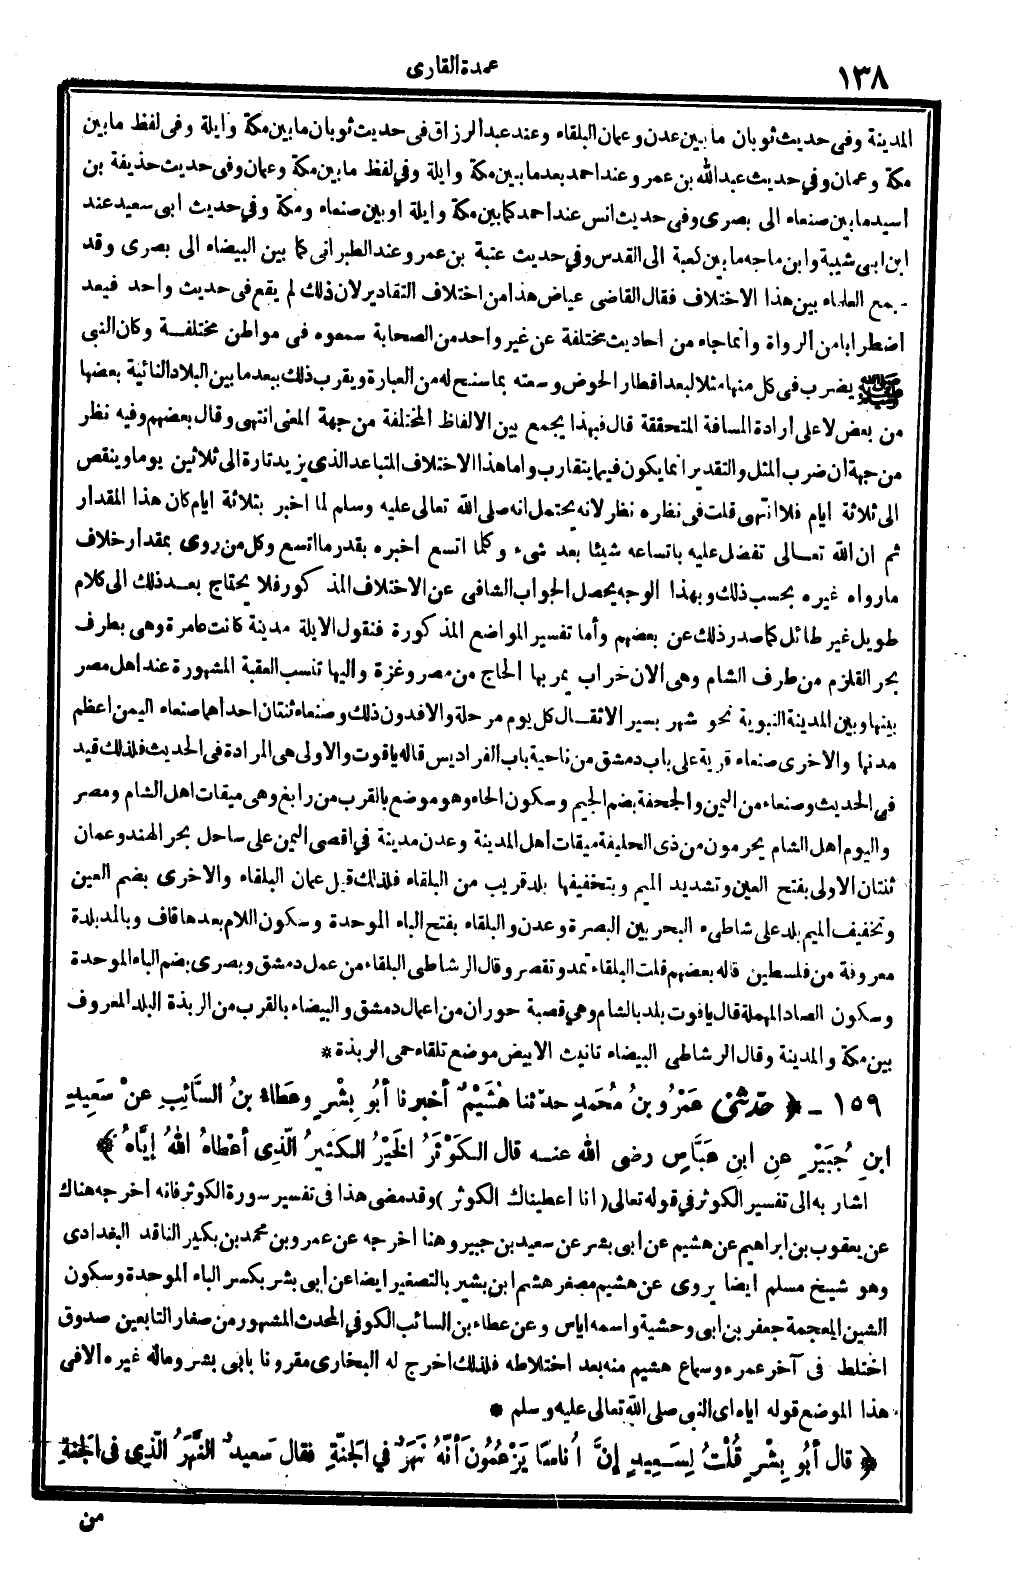 ١٣٨
عمدة القارى
المدينة وفى حديث ثوبان ما بين عدن وعمان البلقاء وعند عبد الرزاق فى حديث ثوبان ما بين مكة وايلة وفى لفظ ما بين
مكة وعمان وفي حديث عبدالله بن عمرو عند احمد بعد ما بين مكة وايلة وفي لفظ ما بين مكة وعمان وفى حديث حذيفة بن
اسيد ما بين صنعاء الى بصرى وفى حديث انس عند احمد كما بين مكة وايلة او بين صنعاء ومكة وفي حديث ابى سعيد عند
ابن ابى شيبة وابن ماجه ما بين كعبة الى القدس وفي حديث عتبة بن عمرو عند الطبرانى كما بين البيضاء الى بصرى وقد
جمع العلماء بين هذا الاختلاف فقال القاضى عياض هذا من اختلاف التقادير لان ذلك لم يقع فى حديث واحد فيعد
اضطرابا من الرواة وانما جاء من احاديث مختلفة عن غير واحد من الصحابة سمعوه فى مواطن مختلفة وكان النبى
ﷺ يضرب فى كل منها مثلا لبعد اقطار الحوض وسعته بما سنح له من العبارة ويقرب ذلك ببعد ما بين البلاد النائية بعضها
من بعض لا على ارادة المسافة المتحققة قال فبهذا يجمع بين الالفاظ المختلفة من جهة المعنى انتهى وقال بعضهم وفيه نظر
من جهة ان ضرب المثل والتقدير انما يكون فيما يتقارب واما هذا الاختلاف المتباعد الذى يزيد تارة الى ثلاثين يوما وينقص
الى ثلاثة ايام فلا انتهى قلت فى نظره نظر لانه يحتمل انه صلى الله تعالى عليه وسلم لما اخبر بثلاثة ايام كان هذا المقدار
ثم ان الله تعالى تفضل عليه باتساعه شيئا بعد شىء وكلما اتسع اخبره بقدر ما اتسع وكل من روى بمقدار خلاف
مارواه غيره بحسب ذلك وبهذا الوجه يحصل الجواب الشافى عن الاختلاف المذكور فلا يحتاج بعد ذلك الى كلام
طويل غير طائل كما صدر ذلك عن بعضهم وأما تفسير المواضع المذكورة فنقول الايلة مدينة كانت عامرة وهى بطرف
بحر القلزم من طرف الشام وهى الان خراب يمر بها الحاج من مصر وغزة واليها تنسب العقبة المشهورة عند اهل مصر
بينها وبين المدينة النبوية نحو شهر بسير الاثقال كل يوم مرحلة والا فدون ذلك وصنعاء ثنتان احداهما صنعاء اليمن اعظم
مدنها والاخرى صنعاء قرية على باب دمشق من ناحية باب الفراديس قاله ياقوت والاولى هى المرادة فى الحديث فلذلك قيد
فى الحديث وصنعاء من اليمن والجحفة بضم الجيم وسكون الحاء وهو موضع بالقرب من رابغ وهى ميقات اهل الشام ومصر
واليوم اهل الشام يحرمون من ذى الحليفة ميقات أهل المدينة وعدن مدينة في اقصى اليمن على ساحل بحر الهند وعمان
ثنتان الاولى بفتح العين وتشديد الميم وبتخفيفها بلد قريب من البلقاء فلذلك قيل عمان البلقاء والاخرى بضم العين
وتخفيف الميم بلد على شاطىء البحر بين البصرة وعدن والبلقاء بفتح الباء الموحدة وسكون اللام بعدها قاف وبالمد بلدة
معروفة من فلسطين قاله بعضهم قلت البلقاء تمد وتقصر وقال الرشاطى البلقاء من عمل دمشق وبصرى بضم الباء الموحدة
وسكون الصاد المهملة قال ياقوت بلد بالشام وهي قصبة حوران من اعمال دمشق والبيضاء بالقرب من الربذة البلد المعروف
بين مكة والمدينة وقال الرشاطى البيضاء تانيث الابيض موضع تلقاء حمى الربذة *
١٥٩ - ﴿ حدثنى عَمْرُو بنُ مُحَمدٍ حدثنا هُشَيْمٌ أخبرنا أبُو بِشْرٍ وعَطاءُ بنُ السَّائِبِ عنْ سَعِيدِ
ابنِ جُبَيْرٍ عنِ ابنِ عَبَّاسٍ رضى الله عنه قال الكَوْثَرُ الخَيْرُ الكَثيرُ الَّذِى أعْطاهُ اللهُ إيَّاهُ ﴾
اشار به الى تفسير الكوثر في قوله تعالى ( انا اعطيناك الكوثر ) وقد مضى هذا فى تفسير سورة الكوثر فانه اخرجه هناك
عن يعقوب بن ابراهيم عن هشيم عن ابى بشر عن سعيد بن جبير وهنا اخرجه عن عمرو بن محمد بن بكير الناقد البغدادى
وهو شيخ مسلم ايضا يروى عن هشيم مصغر هشم ابن بشير بالتصغير ايضا عن ابى بشر بكسر الباء الموحدة وسكون
الشين المعجمة جعفر بن ابى وحشية واسمه اياس وعن عطاء بن السائب الكوفي المحدث المشهور من صغار التابعين صدوق
اختلط فى آخر عمره وسماع هشيم منه بعد اختلاطه فلذلك اخرج له البخارى مقرونا بابى بشر وماله غيره الا فى
هذا الموضع قوله اياه اى النبى صلى الله تعالى عليه وسلم *
﴿ قال أبُو بِشْرٍ قُلْتُ لِسَعِيدٍ إنَّ أُناسًا يَزْعُمُونَ أنَّهُ نَهَرٌ في الجَنَّةِ فقال سَعيدٌ النَّهَرُ الَّذِى فى الجَنَّةِ
من